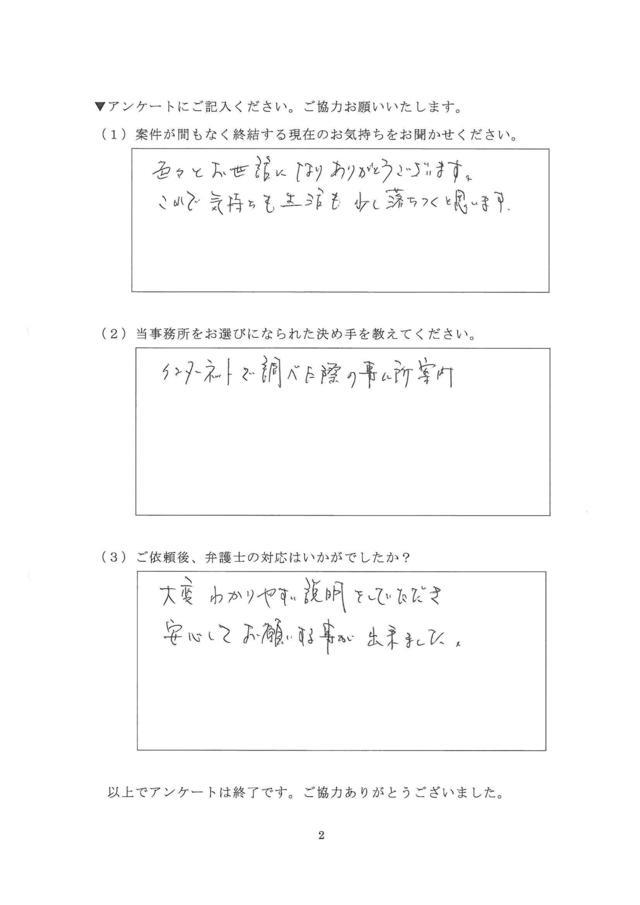 ▼アンケートにご記入ください。ご協力お願いいたします。
（1）案件が間もなく終結する現在のお気持ちをお聞かせください。
色々とお世話になりありがとうございます。
これで気持ちも生活も少し落ちつくと思います.
（2）当事務所をお選びになられた決め手を教えてください。
インターネットで調べた際の事ム所案内
（3）ご依頼後、弁護士の対応はいかがでしたか？
大変わかりやすい説明をしていただき
安心してお願いする事が出来ました。
以上でアンケートは終了です。ご協力ありがとうございました。
2